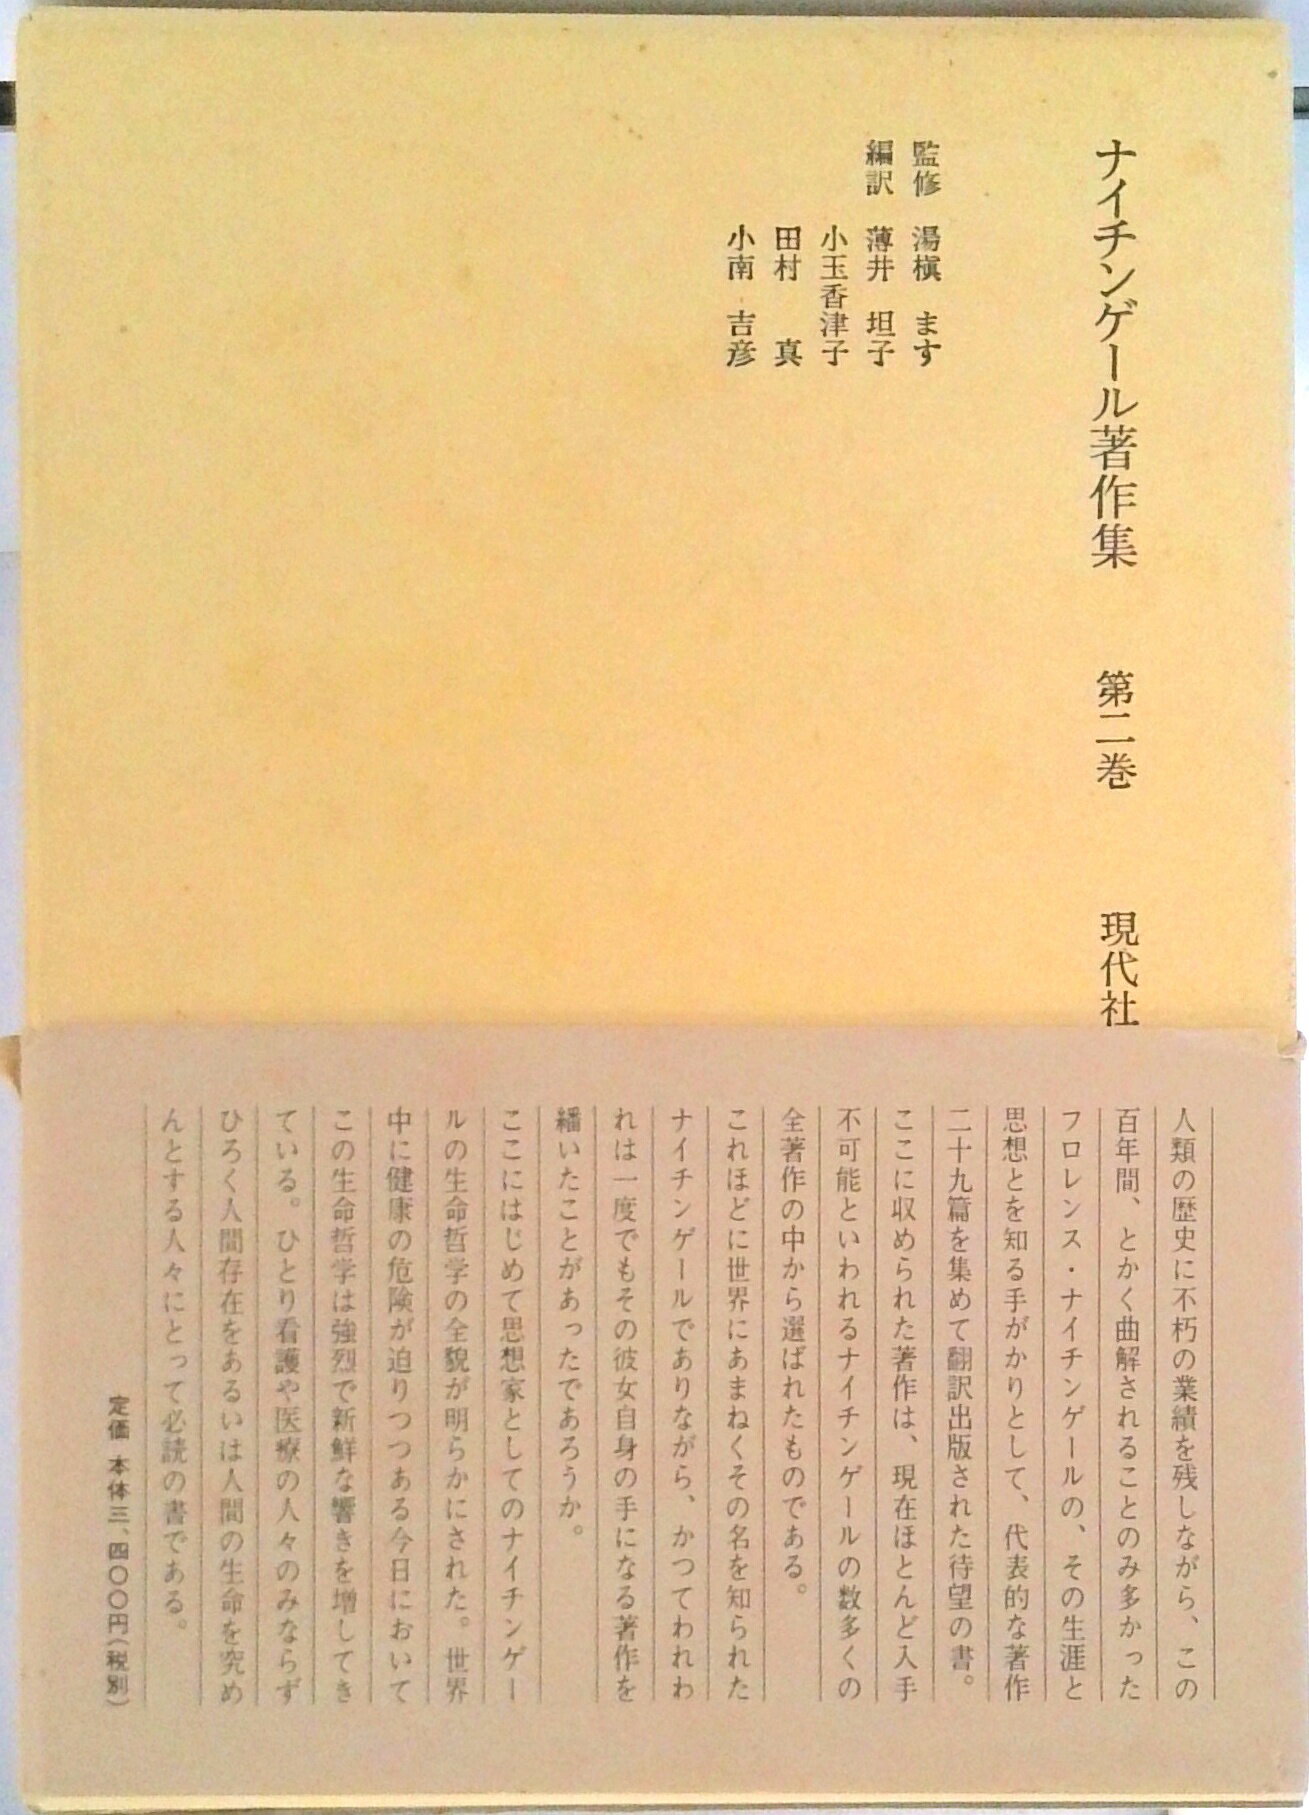 ナイチンゲール著作集 第二巻 現代社
監修 湯槇 ます
編訳 薄井 坦子
小玉香津子
田村 真
小南 吉彦
人類の歴史に不朽の業績を残しながら、この
百年間、とかく曲解されることのみ多かった
フロレンス・ナイチンゲールの、その生涯と
思想とを知る手がかりとして、代表的な著作
二十九篇を集めて翻訳出版された待望の書。
ここに収められた著作は、現在ほとんど入手
不可能といわれるナイチンゲールの数多くの
全著作の中から選ばれたものである。
これほどに世界にあまねくその名を知られた
ナイチンゲールでありながら、かつてわれわ
れは一度でもその彼女自身の手になる著作を
繙いたことがあったであろうか。
ここにはじめて思想家としてのナイチンゲー
ルの生命哲学の全貌が明らかにされた。世界
中に健康の危険が迫りつつある今日において
この生命哲学は強烈で新鮮な響きを増してき
ている。ひとり看護や医療の人々のみならず
ひろく人間存在をあるいは人間の生命を究め
んとする人々にとって必読の書である。
定価 本体三、四〇〇円(税別)